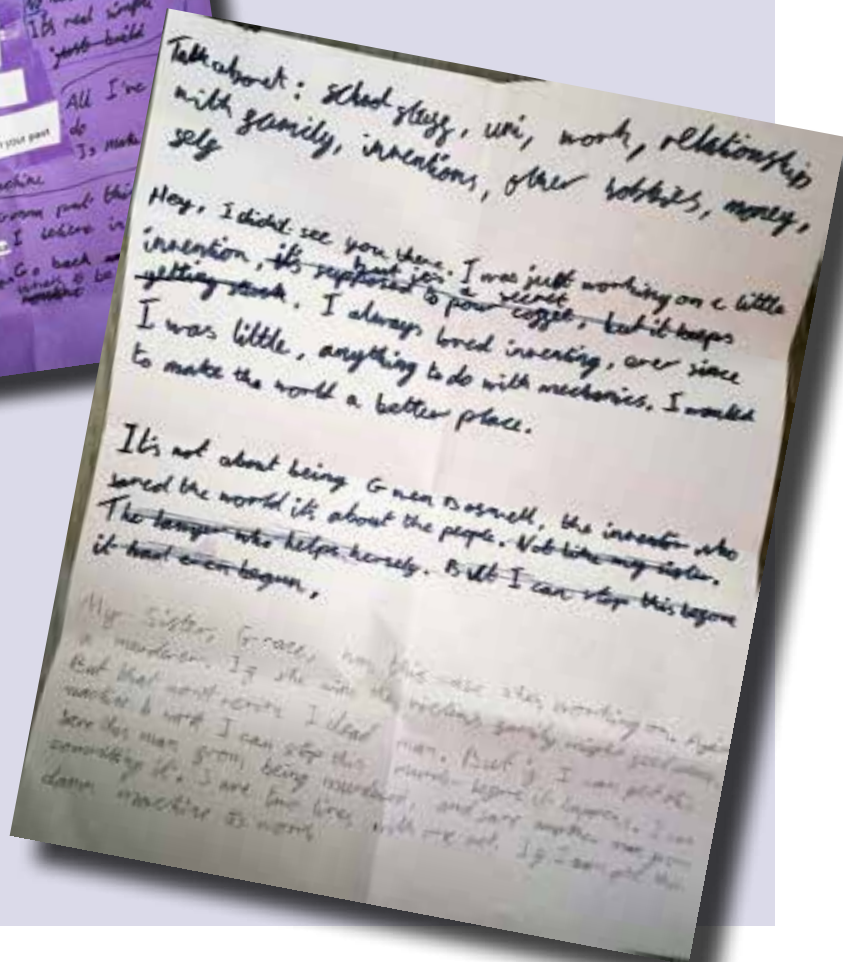 No
It's real simple
just build
All I've
do
Is make
n your past
machine
room past this
I where in
Go back
when it be
Talk about: school stuff, uni, work, relationship
with family, inventions, other hobbies, money,
self
Hey, I didnt see you there. I was just working on a little
but its a secret
invention, it's supposed to pour coffee, but it keeps
getting stuck. I always loved inventing, ever since
I was little, anything to do with mechanics. I wanted
to make the world a better place.
It's not about being Gwen Boswell, the inventor who
saved the world it's about the people. Not like my sister.
The lawyer who helps herself. But I can stop this before
it had even begun.
My Sister, Grace, has this case shes working on.
a murderer. If she wins the victims family might
But that wont revive 1 dead man. But if I can get this
machine to work I can stop this murder before it happens. I can
save this man from being murdered, and save another man from
committing it. I save two lives with one act. If I can get this
damn machine to work